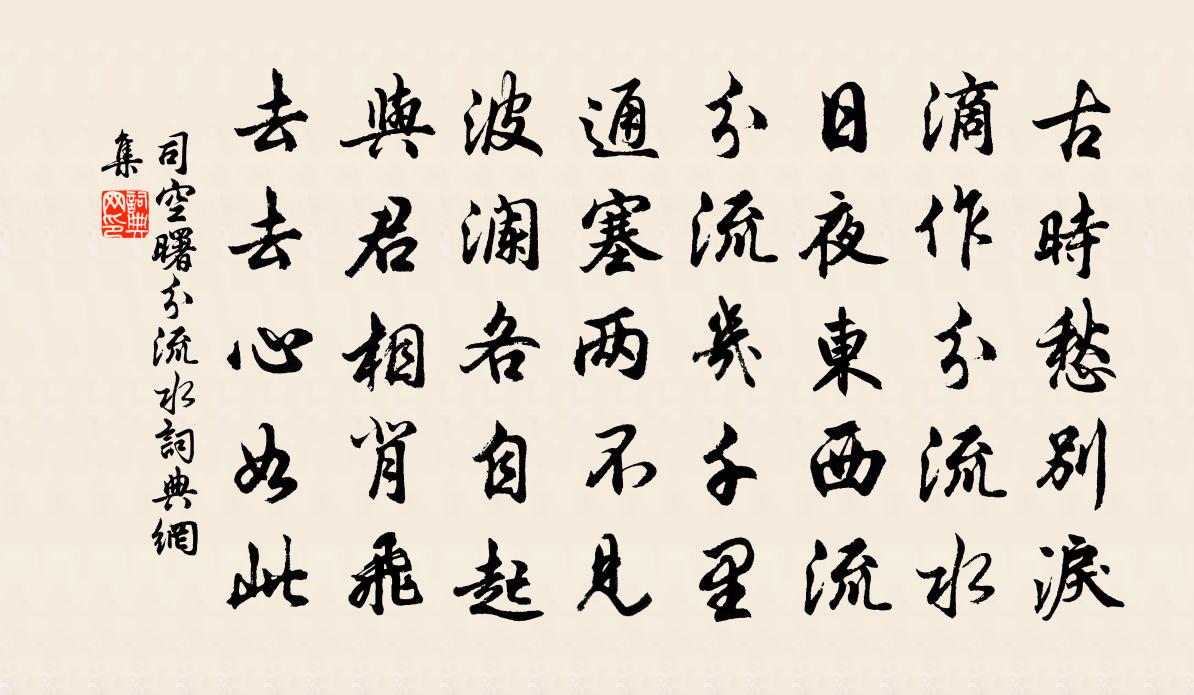 古時愁別淚
滴作分流水
日夜東西流
分流幾千里
通塞两不見
波澜各自起
與君相背飛
去去心如此
司空曙分流水詞典網
集
詞典
网印